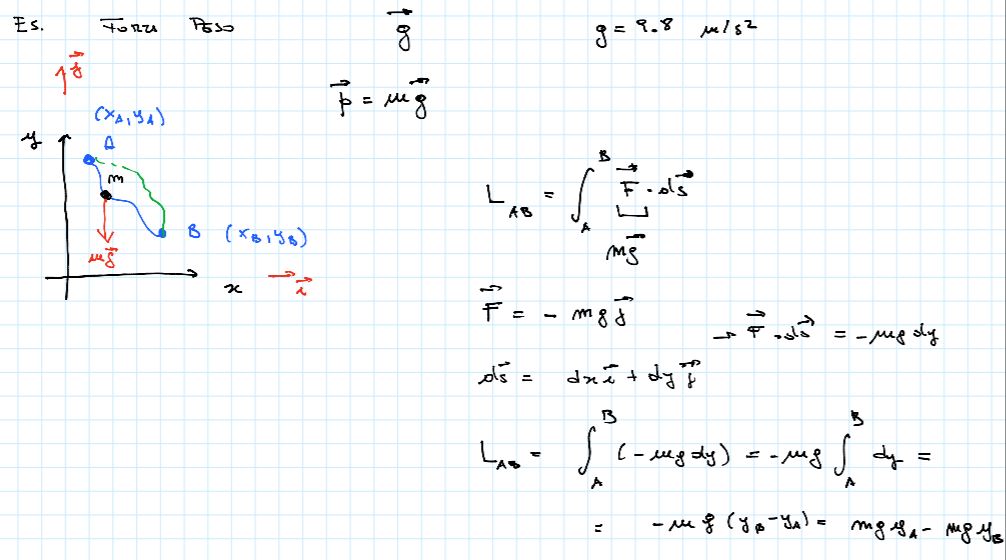 Es. Forza Peso g⃗ g = 9.8 m/s²
j⃗
p⃗ = mg⃗
(xA, yA)
y A
m
L_AB = ∫_A^B F⃗ · ds⃗
B (xB, yB)
mg⃗
mg⃗
x i⃗
F⃗ = - mg j⃗
→ F⃗ · ds⃗ = -mg dy
ds⃗ = dx i⃗ + dy j⃗
L_AB = ∫_A^B (-mg dy) = -mg ∫_A^B dy =
= -mg (yB - yA) = mg yA - mg yB